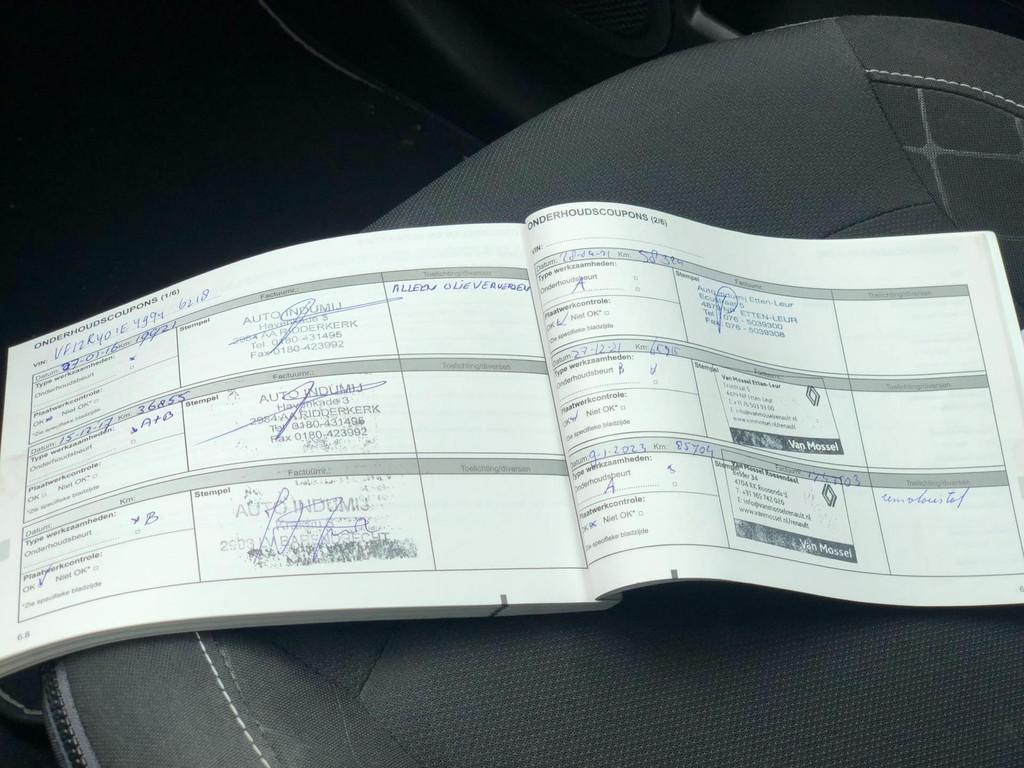 ONDERHOUDSCOUPONS (1/6)
VIN:
Datum: 27-01-16 Km: 19421
Type werkzaamheden:
Onderhoudsbeurt
Plaatwerkcontrole:
OK Niet OK*
*Zie specifieke bladzijde
Factuurnr.:
Stempel
AUTO INDUMIJ
Havenkade 3
2984 AA RIDDERKERK
Tel 0180-431495
Fax 0180-423992
Toelichting/diversen
ALLEEN OLIEVERVERSEN
Datum: 15-12-17 Km: 36855
Type werkzaamheden:
Onderhoudsbeurt A+B
Plaatwerkcontrole:
OK Niet OK*
*Zie specifieke bladzijde
Factuurnr.:
Stempel
AUTO INDUMIJ
Havenkade 3
2984 AA RIDDERKERK
Tel 0180-431495
Fax 0180-423992
Toelichting/diversen
Datum: Km:
Type werkzaamheden:
Onderhoudsbeurt B
Plaatwerkcontrole:
OK Niet OK*
*Zie specifieke bladzijde
Factuurnr.:
Stempel
AUTO INDUMIJ
A
Toelichting/diversen
6.8
ONDERHOUDSCOUPONS (2/6)
VIN:
Datum: 28-04-21 Km:
Type werkzaamheden:
Onderhoudsbeurt A
Plaatwerkcontrole:
OK Niet OK*
*Zie specifieke bladzijde
Factuurnr.:
Stempel
Etten-Leur
ETTEN-LEUR
Tel 076 - 5039300
Fax 076 - 5039308
Toelichting/diversen
Datum: 27-12-21 Km:
Type werkzaamheden:
Onderhoudsbeurt B
Plaatwerkcontrole:
OK Niet OK*
*Zie specifieke bladzijde
Factuurnr.:
Stempel
Van Mossel Etten-Leur
Van Mossel
Toelichting/diversen
Datum: 9-1-2023 Km: 85704
Type werkzaamheden:
Onderhoudsbeurt
A
Plaatwerkcontrole:
OK Niet OK*
*Zie specifieke bladzijde
Factuurnr.:
Stempel
Van Mossel Roosendaal
Gelder 34
4704 RK Roosendaal
T: +31 165 742 026
E: info@vanmosselrenault.nl
www.vanmosselrenault.nl/renault
Van Mossel
Toelichting/diversen
remvloeistof